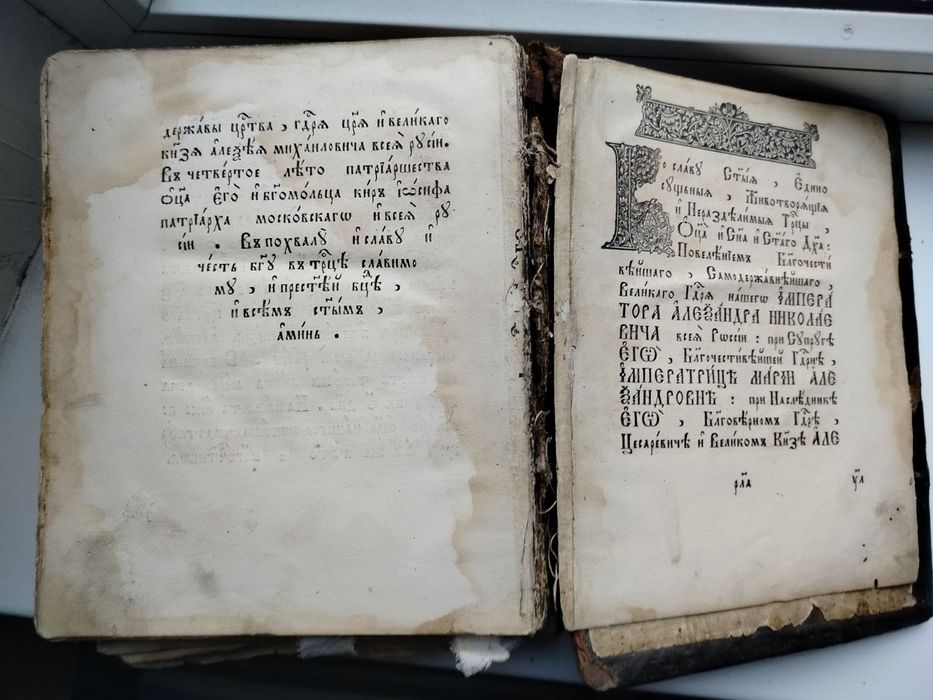 держа́вы црⷭ҇тва , гдⷭ҇ря цр҃я и҆ вели́каго
кн҃зя а҆леѯѣ́я миха́иловича всея̀ рꙋсі́и.
Въ четве́ртое лѣ́то патрїа́ршества
ѻ҆ц҃а̀ є҆гѡ̀ и҆ бг҃омо́льца ки́ръ і҆ѡ́сифа
патрїа́рха моско́вскагѡ и҆ всея̀ рꙋ
сі́и . Въ похвалꙋ̀ и҆ сла́вꙋ и҆
че́сть бг҃ꙋ въ трⷪ҇цѣ сла́вимо
мꙋ , и҆ прест҃ѣ́й бц҃ѣ ,
и҆ всѣ́мъ ст҃ы́мъ ,
а҆ми́нь .
Во сла́вꙋ Ст҃ы́я , Є҆дино
сꙋ́щныя , Животворя́щїя
и҆ Нераздѣ́лимыя Трⷪ҇цы ,
Ѻ҆ц҃а̀ и҆ Сн҃а и҆ Ст҃а́го Дх҃а :
Повелѣ́нїемъ Благочести
вѣ́йшаго , Самодержа́внѣйшаго ,
Вели́каго Гдⷭ҇ря на́шегѡ І҆МПЕРА
ТОРА А҆ЛЕѮА́НДРА НИКОЛАЕ
ВИЧА всея̀ Рѡссі́и : при Сꙋпрꙋ́гѣ
Є҆ГѠ̀ , Благочести́вѣйшей Гдⷭ҇рнѣ ,
І҆МПЕРАТРИ́ЦѢ МАРІ́И А҆ЛЕ
ѮА́НДРОВНѢ : при Наслѣ́дникѣ
Є҆ГѠ̀ , Благовѣ́рномъ Гдⷭ҇рѣ ,
Цесаре́вичѣ и҆ Вели́комъ Кн҃зѣ А҆ЛЕ
рл҃а ѵл